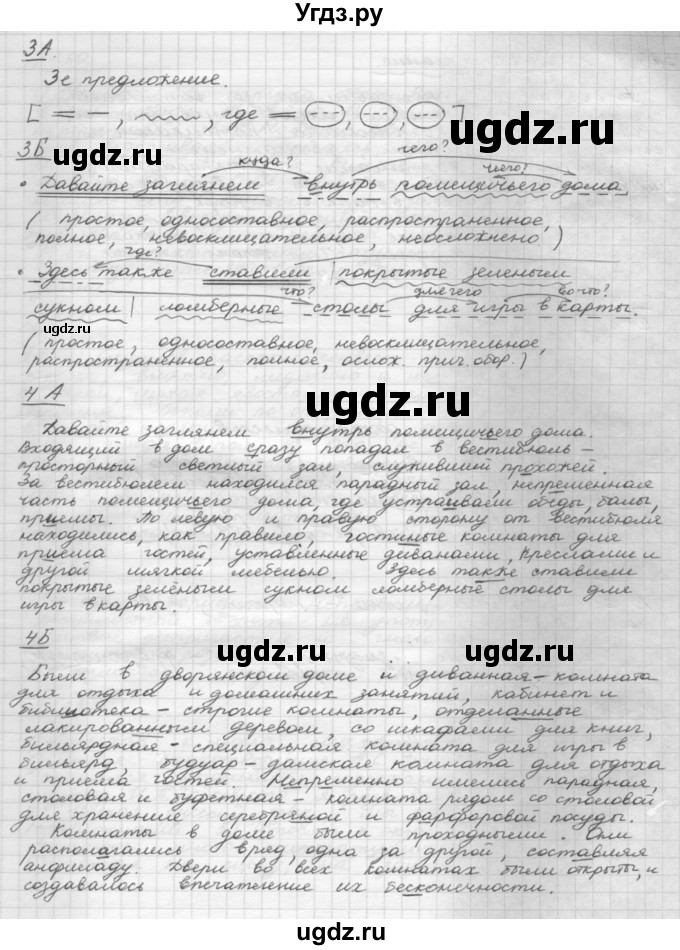 Угдз.ру
3А.
3е предложение.
[ = — , ~~~ , где = (---), (---), (---) ]
ugdz.ru
3Б
куда? чего? чьего?
• Давайте заглянем внутрь помещичьего дома.
( простое, односоставное, распространенное,
полное, невосклицательное, неосложнено )
где?
• Здесь также ставили | покрытые зеленым
что? для чего во что?
сукном | ломберные столы для игры в карты.
ugdz.ru
ugdz.ru
( простое, односоставное, невосклицательное,
распространенное, полное, ослож. прич. обор. )
4 А
ugdz.ru
Давайте заглянем внутрь помещичьего дома.
Входящий в дом сразу попадал в вестибюль –
просторный светлый зал, служивший прохожей.
За вестибюлем находился парадный зал, непременная
часть помещичьего дома, где устраивали обеды, балы,
приёмы. По левую и правую сторону от вестибюля
находились, как правило, гостиные комнаты для
приёма гостей, уставленные диванами, креслами и
другой мягкой мебелью. Здесь также ставили
покрытые зелёным сукном ломберные столы для
игры в карты.
ugdz.ru
ugdz.ru
4Б
ugdz.ru
Были в дворянском доме и диванная – комната
для отдыха и домашних занятий, кабинет и
библиотека – строгие комнаты, отделанные
лакированным деревом, со шкафами для книг,
бильярдная – специальная комната для игры в
бильярд, будуар – дамская комната для отдыха
и приема гостей. Непременно имелись парадная,
столовая и буфетная – комната рядом со столовой
для хранения серебряной и фарфоровой посуды.
ugdz.ru
ugdz.ru
Комнаты в доме были проходными. Они
располагались в ряд, одна за другой, составляя
анфиладу. Двери во всех комнатах были открыты, и
создавалось впечатление их бесконечности.
ugdz.ru
ugdz.ru